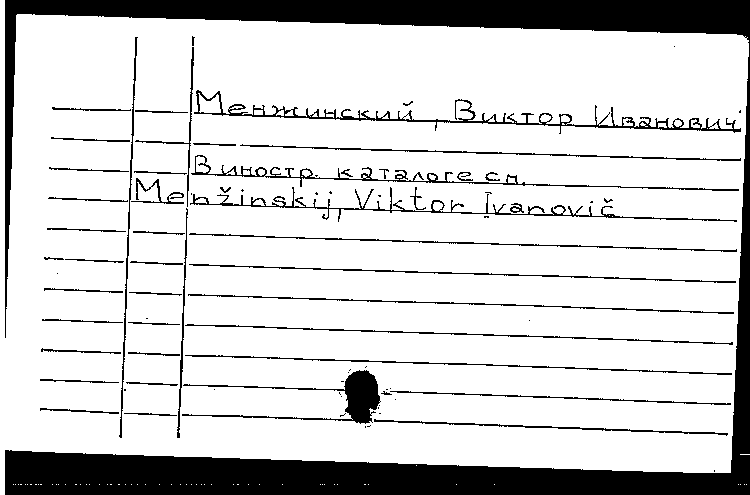 Менжинский, Виктор Иванович
В иностр. каталоге см.
Menžinskij, Viktor Ivanovič